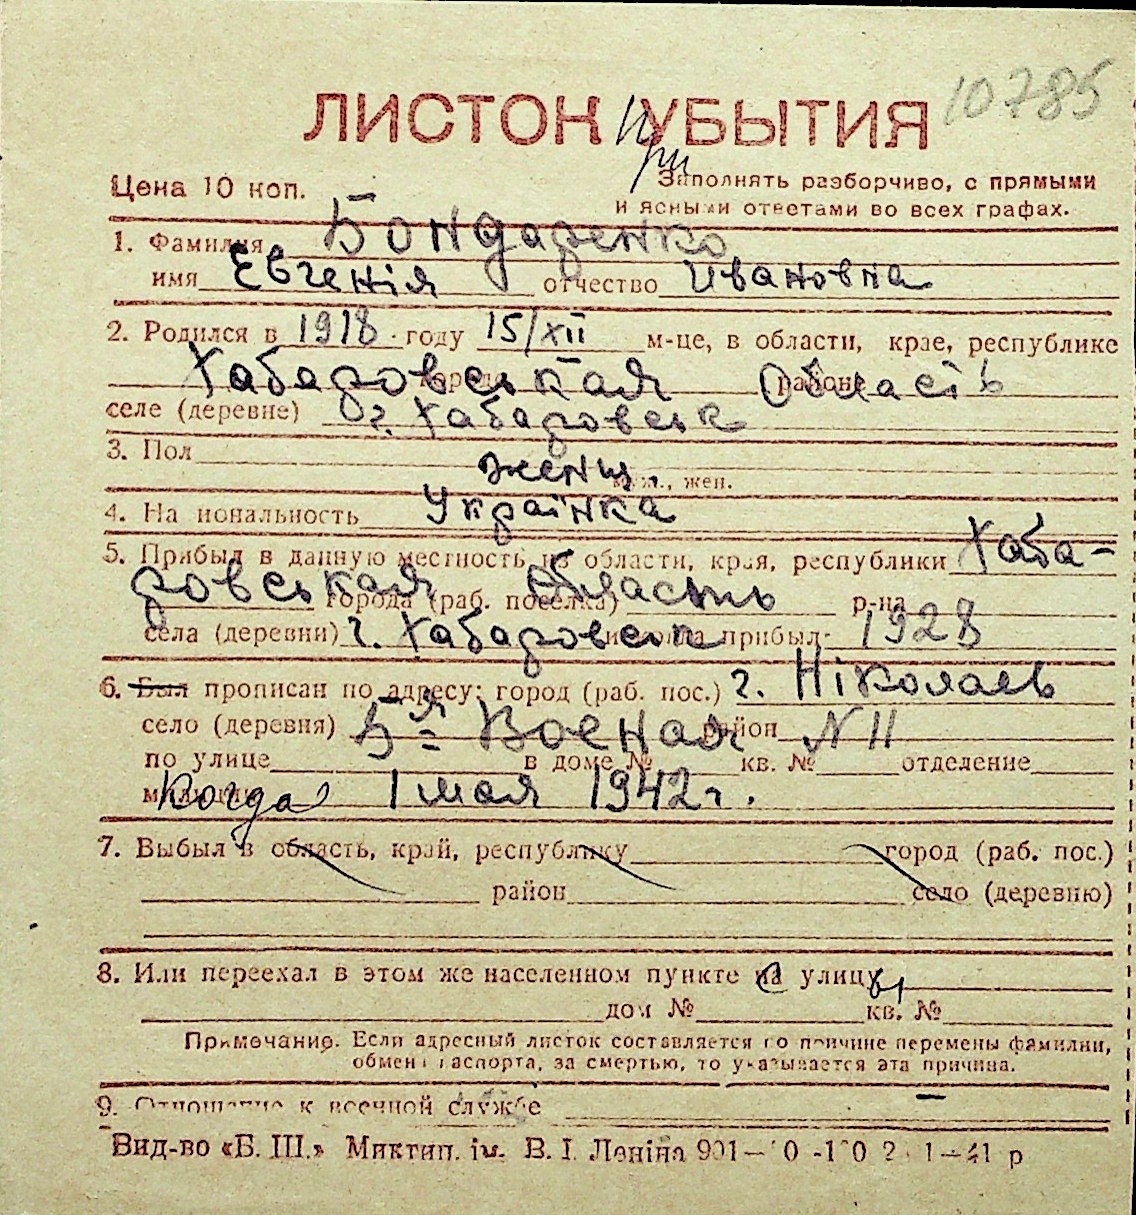 10785
ЛИСТОК УБЫТИЯ
при
Цена 10 коп.
Заполнять разборчиво, с прямыми
и ясными ответами во всех графах.
1. Фамилия Бондаренко
имя Евгенія отчество Ивановна
2. Родился в 1918 году 15/XII м-це, в области, крае, республике
Хабаровськая города Область районе
селе (деревне) г. Хабаровськ
3. Пол женщ. муж., жен.
4. Национальность Українка
5. Прибыл в данную местность из области, края, республики Хаба-
ровськая города (раб. поселка) Область р-на
села (деревни) г. Хабаровськ и когда прибыл: 1928
6. Был прописан по адресу: город (раб. пос.) г. Ніколаев
село (деревня) 5-я Военая район N 11
по улице в доме № кв. № отделение
милиции Когда 1 мая 1942 г.
7. Выбыл в область, край, республику город (раб. пос.)
район село (деревню)
8. Или переехал в этом же населенном пункте на улицу
дом № кв. №
Примечание. Если адресный листок составляется по причине перемены фамилии,
обмена паспорта, за смертью, то указывается эта причина.
9. Отношение к военной службе —
Вид-во «Б. Ш.» Миктип. ім. В. І. Леніна